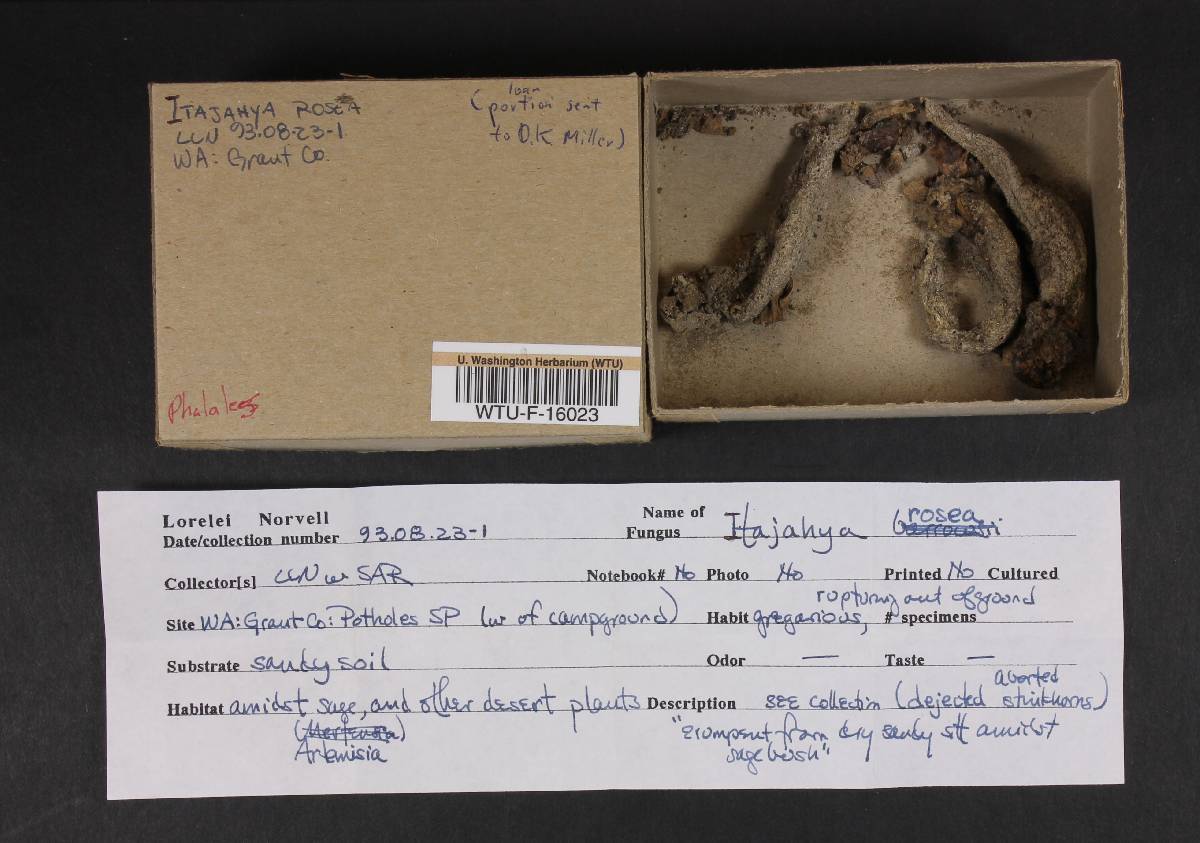 ITAJAHYA ROSEA
LLN 93.08-23-1
WA: Grant Co.
loan
(portion sent
to O.K. Miller)
Phalales
U. Washington Herbarium (WTU)
WTU-F-16023
Lorelei Norvell
Date/collection number 93.08.23-1
Name of Fungus Itajahya rosea
Collector[s] LLN w SAR
Notebook# No Photo No Printed No Cultured
Site WA: Grant Co: Potholes SP (w of campground)
Habit gregarious, rupturing out of ground # specimens
Substrate sandy soil
Odor — Taste —
Habitat amidst sage, and other desert plants
(
)
Artemisia
Description see collection (dejected aborted stinkhorns)
"erumpent from dry sandy amidst
sage brush"